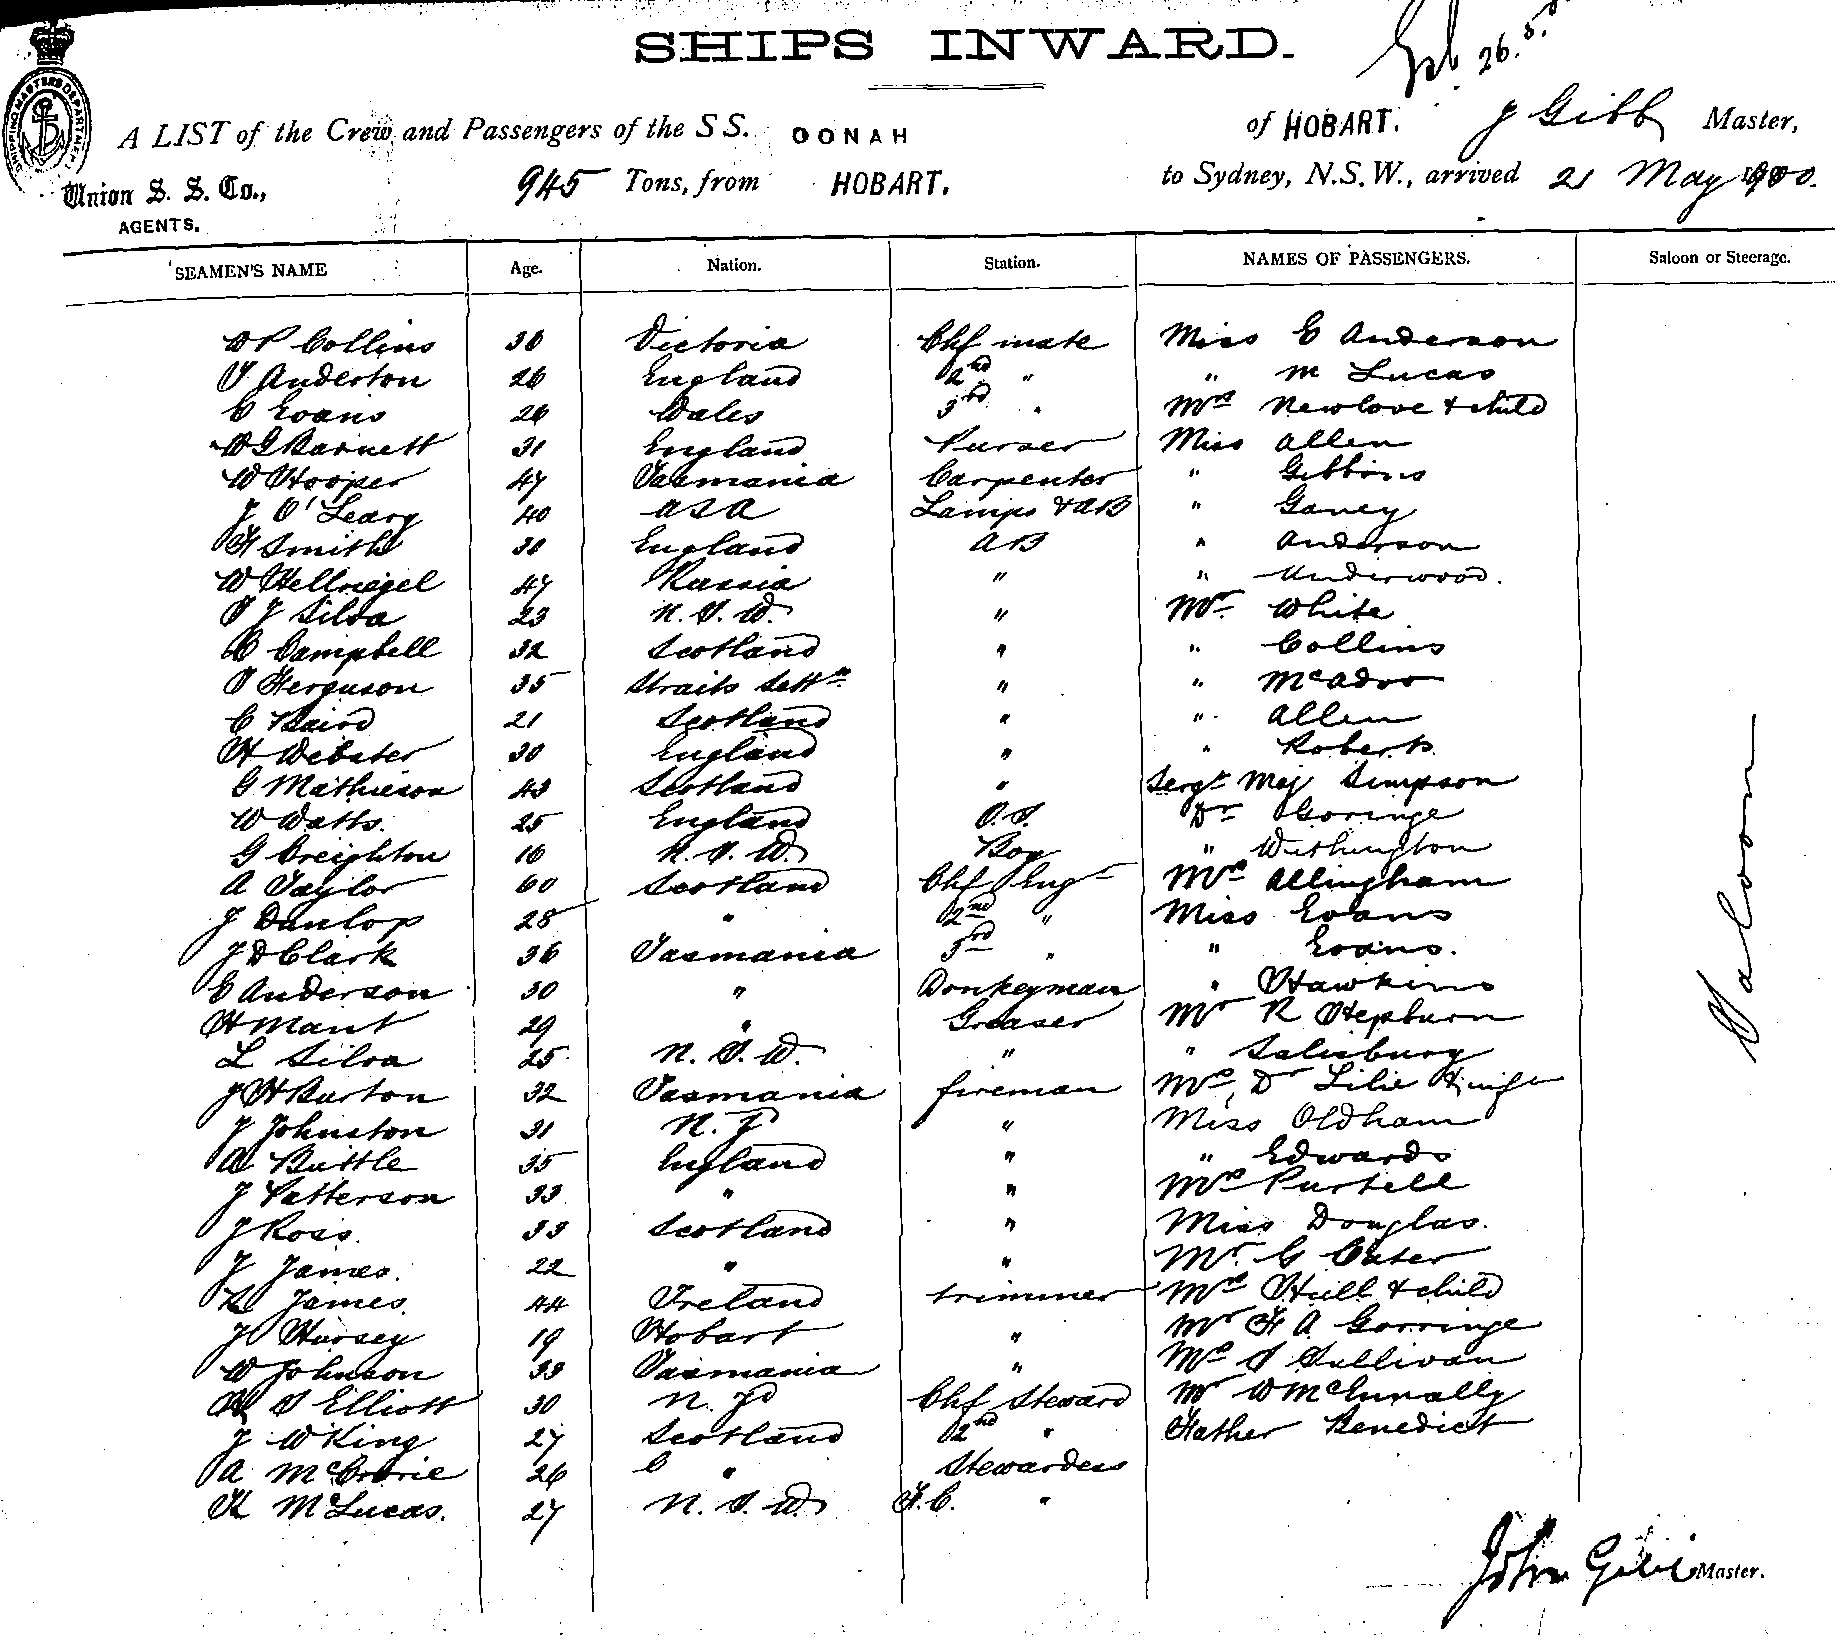 SHIPS INWARD.
26.5.
A LIST of the Crew and Passengers of the SS. OONAH of HOBART. J Gibb Master,
Union S. S. Co., 945 Tons, from HOBART. to Sydney, N.S.W., arrived 21 May 1900.
AGENTS.
SEAMEN'S NAME Age. Nation. Station. NAMES OF PASSENGERS. Saloon or Steerage.
W P Collins 36 Victoria Chf mate Miss E Anderson
T Anderton 26 England 2nd " " M Lucas
C Evans 26 Wales 3rd " Mrs Newlove & child
W G Barnett 31 England Purser Miss Allen
W Hooper 47 Tasmania Carpenter " Gibbons
J O'Leary 40 USA Lamps & AB " Ganey
H Smith 30 England AB " Anderson
W Hellriegel 47 Russia " " Underwood.
P J Silva 23 N. S. W. " Mr White
C Campbell 32 Scotland " " Collins
P Ferguson 35 Straits Settm " " McAdoo
C Baird 21 Scotland " " Allen
H Webster 30 England " " Roberts.
G Mathieson 43 Scotland " Sergt Maj Simpson
W Watts. 25 England O.S. Dr Goringe
G Creighton 16 N. S. W. Boy " Withington
A Taylor 60 Scotland Chf Engr Mrs Allingham
J Dunlop 28 " 2nd " Miss Evans
J D Clark 36 Tasmania 3rd " " Evans.
C Anderson 30 " Donkeyman " Hawkins
H Mant 29 " Greaser Mr R Hepburn
L Silva 25 N. S. W. " " Salisbury
J H Burton 32 Tasmania fireman Dr Lilie & wife
J Johnston 31 N. Z " Miss Oldham
A Buttle 35 England " " Edwards
J Patterson 33 " " Mrs Purtell
J Ross. 33 Scotland " Miss Douglas.
J James. 22 " " Mr. G Cater
James. 44 Ireland trimmer Mrs Hull & child
J Hursey 19 Hobart " Mr H A Gorringe
W Johnson 33 Tasmania " Mrs S Sullivan
S Elliott 30 N. Zd Chf Steward Mr W McEnnally
J W King 27 Scotland 2nd " Father Benedict
A McCrorie 26 " Stewardess
K McLucas. 27 N. S. W. F.C. "
Saloon
John Gibb Master.